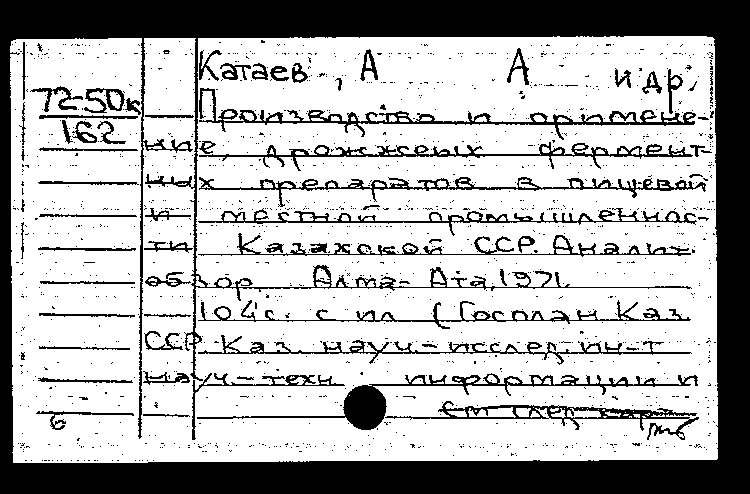 Катаев, А А и др.
72-50к
Производство и примене-
162
ние, дрожжевых фермент-
ных препаратов в пищевой
и местной промышленнос-
ти Казахской ССР. Аналит.
обзор. Алма-Ата, 1971.
104с. с ил (Госплан Каз.
ССР. Каз. науч.-исслед. ин-т
науч.-техн. информации и
см след карт
6